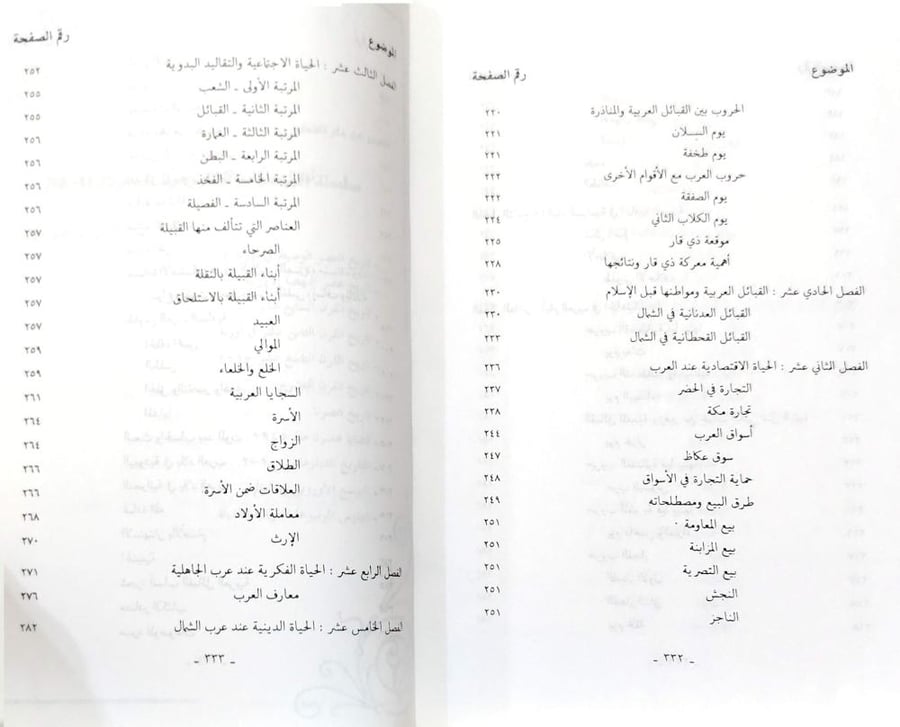 الموضوع رقم الصفحة
الحروب بين القبائل العربية والمناذرة ٢٢٠
يوم السلان ٢٢١
يوم طخفة ٢٢١
حروب العرب مع الأقوام الأخرى ٢٢٢
يوم الصفقة ٢٢٢
يوم الكلاب الثاني ٢٢٤
موقعة ذي قار ٢٢٥
أهمية معركة ذي قار ونتائجها ٢٢٨
الفصل الحادي عشر : القبائل العربية ومواطنها قبل الإسلام ٢٣٠
القبائل العدنانية في الشمال ٢٣٠
القبائل القحطانية في الشمال ٢٣٣
الفصل الثاني عشر : الحياة الاقتصادية عند العرب ٢٣٦
التجارة في الحضر ٢٣٧
تجارة مكة ٢٣٨
أسواق العرب ٢٤٤
سوق عكاظ ٢٤٧
حماية التجارة في الأسواق ٢٤٨
طرق البيع ومصطلحاته ٢٤٩
بيع المعاومة ٢٥١
بيع المزابنة ٢٥١
بيع التصرية ٢٥١
النجش ٢٥١
الناجز ٢٥١
- ٣٣٢ -
الموضوع رقم الصفحة
الفصل الثالث عشر : الحياة الاجتماعية والتقاليد البدوية ٢٥٢
المرتبة الأولى - الشعب ٢٥٥
المرتبة الثانية - القبائل ٢٥٥
المرتبة الثالثة - العمارة ٢٥٦
المرتبة الرابعة - البطن ٢٥٦
المرتبة الخامسة - الفخذ ٢٥٦
المرتبة السادسة - الفصيلة ٢٥٦
العناصر التي تتألف منها القبيلة ٢٥٧
الصرحاء ٢٥٧
أبناء القبيلة بالنقلة ٢٥٧
أبناء القبيلة بالاستلحاق ٢٥٧
العبيد ٢٥٧
الموالي ٢٥٩
الخلع والخلعاء ٢٥٩
السجايا العربية ٢٦١
الأسرة ٢٦٤
الزواج ٢٦٤
الطلاق ٢٦٦
العلاقات ضمن الأسرة ٢٦٦
معاملة الأولاد ٢٦٨
الإرث ٢٧٠
الفصل الرابع عشر : الحياة الفكرية عند عرب الجاهلية ٢٧١
معارف العرب ٢٧٦
الفصل الخامس عشر : الحياة الدينية عند عرب الشمال ٢٨٢
- ٣٣٣ -